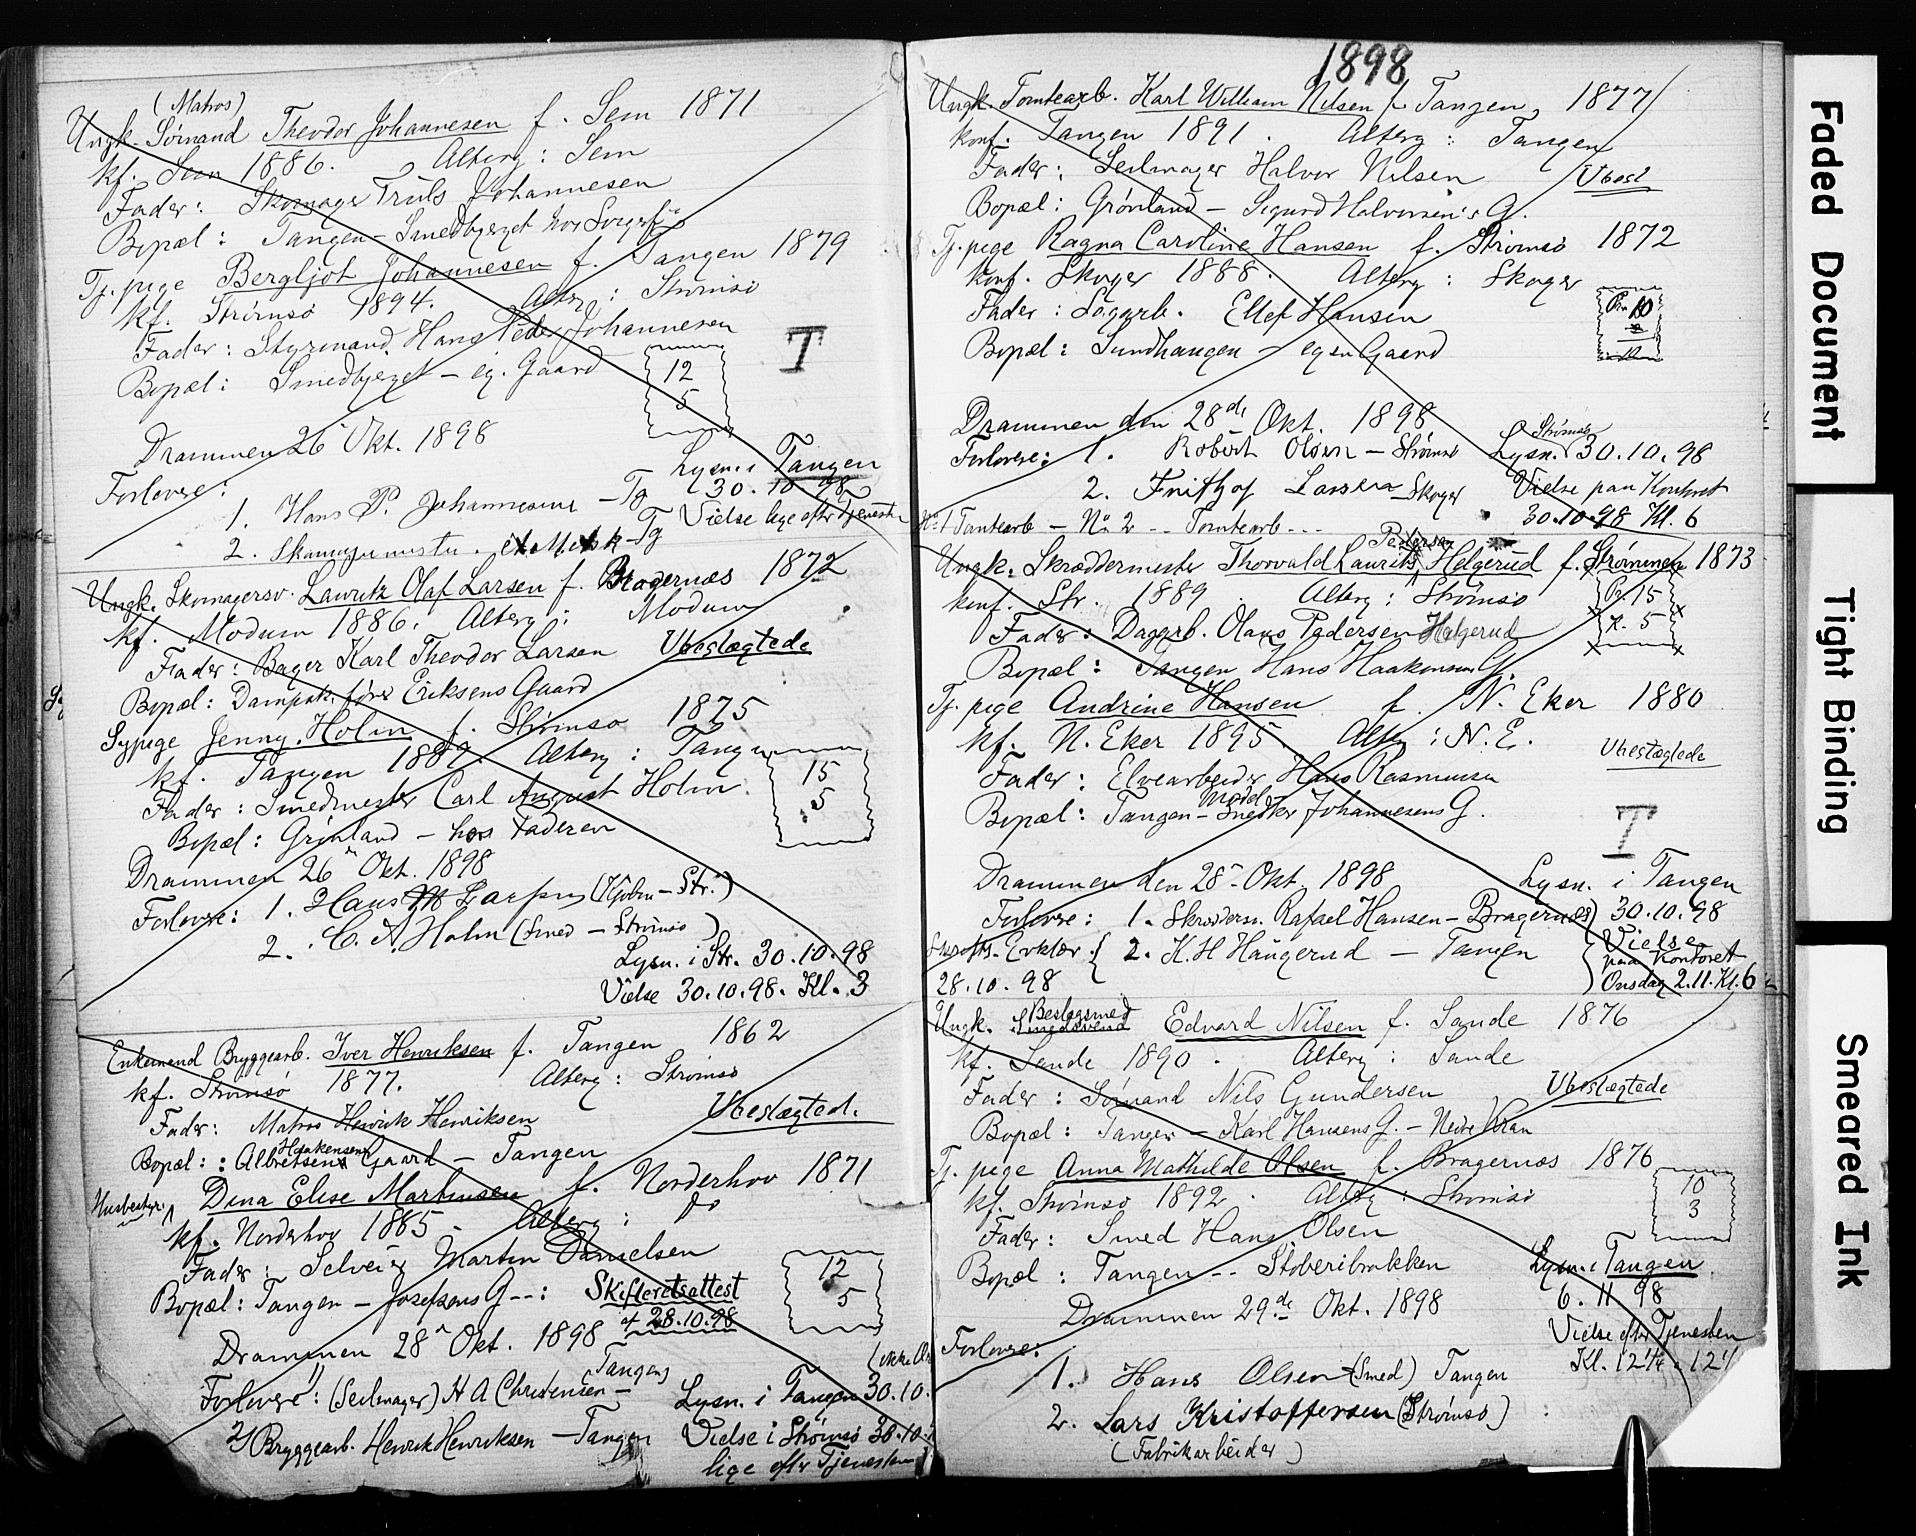 (Matros)
Ungk. Sømand Theodor Johannesen f. Sem 1871
kf. Sem 1886. Alterg: Sem
Fader: Skomager Truls Johannesen
Bopæl: Tangen - Smedbjerget hos
Tj. pige Bergljot Johannesen f. Tangen 1879
kf. Strømsø 1894. Alterg: Strømsø
Fader: Styrmand Hans Peder Johannesen
Bopæl: Smedbjerget - eg. Gaard
12
5
T
Drammen 26 Okt. 1898
Lysn. i Tangen
30. 10. 98
Forlovere:
1. Hans P. Johannesen - Tg
Vielse lige efter Tjenesten
2. - Tg
Ungk. Skomagersv. Lauritz Olaf Larsen f. Bragernæs 1872
kf. Modum 1886. Alterg: Modum
Fader: Bager Karl Theodor Larsen Ubeslægtede
Bopæl: Dampsk.fører Eriksens Gaard
Sypige Jenny Holm f. Strømsø 1875
kf. Tangen 1889. Alterg: Tangen
Fader: Smedmester Carl August Holm
15
5
Bopæl: Grønland - hos Faderen
Drammen 26 Okt. 1898
Forlovere: 1. Hans M Larsen (Kjøbm - Str.)
2. C. A. Holm (Smed - Strømsø)
Lysn. i Str. 30. 10. 98
Vielse 30. 10. 98. Kl. 3
Enkemand Bryggearb. Iver Henriksen f. Tangen 1862
kf. Strømsø 1877. Alterg: Strømsø
Fader: Matros Henrik Henriksen Ubeslægted.
Haakensens
Bopæl: Albretsens Gaard - Tangen
Husbestyr. Dina Elise Martinsen f. Norderhov 1871
kf. Norderhov 1885. Alterg: do
Fader: Selveier Martin Danielsen
12
5
Bopæl: Tangen - Josefsens G--: Skifteretsattest
af 28.10.98
Drammen 28 Okt. 1898
(Tangen)
Forlovere: 1) (Seilmager) H A Christensen - Lysn. i Tangen 30.10.
2) Bryggearb. Henrik Henriksen - Tangen Vielse i Strømsø 30.10.
lige efter Tjenesten
1898
Ungk. Tomtearb. Karl William Nilsen f. Tangen, 1877
konf. Tangen 1891. Alterg: Tangen
Fader: Seilmager Halvor Nilsen Ubesl
Bopæl: Grønland - Sigurd Halvorsen's G.
Tj. pige Ragna Caroline Hansen f. Strømsø 1872
konf. Skoger 1888. Alterg: Skoger
Fader: Dagarb. Ellef Hansen
Pr. 10
Bopæl: Sundhaugen - egen Gaard
Drammen den 28de Okt. 1898
Strømsø
Forlovere: 1. Robert Olsen - Strømsø Lysn. 30.10.98
2. Frithjof Larsen - Skoger Vielse paa Kontoret
No 1 Tomtearb - No 2 -- Tomtearb --- 30.10.98 Kl. 6
Pedersen
Ungk. Skræddermester Thorvald Laurits Helgerud f. Strømmen 1873
konf. Str. 1889. Alterg: Strømsø
Pr. 15
K. 5
Fader: Daggrb. Olaus Pedersen Helgerud
Bopæl: Tangen Hans Haakensens G.
Tj. pige Andrine Hansen f. N. Eker 1880
kf. N. Eker 1895. Alterg: N. E.
Ubeslægtede
Fader: Elvearbeider Hans Rasmussen
Model-
Bopæl: Tangen - Snedker Johannesens G.
T
Drammen den 28 Okt. 1898 Lysn. i Tangen
Forlovere: 1. Skræderm. Rafael Hansen - Bragernæs) 30.10.98
2. K. H Haugerud - Tangen
Vielse
paa Kontoret
28.10.98
Onsdag 2.11. Kl. 6
Beslagsmed
Ungk. Smedsvend Edvard Nilsen f. Sande 1876
kf. Sande 1890. Alterg: Sande
Fader: Sømand Nils Gundersen Ubeslægtede
Bopæl: Tangen - Karl Hansens G. - Nedre Kran
Tj. pige Anna Mathilde Olsen f. Bragernæs 1876
kf. Strømsø 1892. Alterg: Strømsø
10
3
Fader: Smed Hans Olsen
Bopæl: Tangen -- Støberibrakken Lysn. i Tangen
6. 11 98
Drammen 29de Okt. 1898
Vielse efter Tjenesten
Forlovere:
Kl. 12 1/4
1. Hans Olsen (Smed) Tangen
2. Lars Kristoffersen (Strømsø)
(Fabrikarbeider)
Faded Document
Tight Binding
Smeared Ink